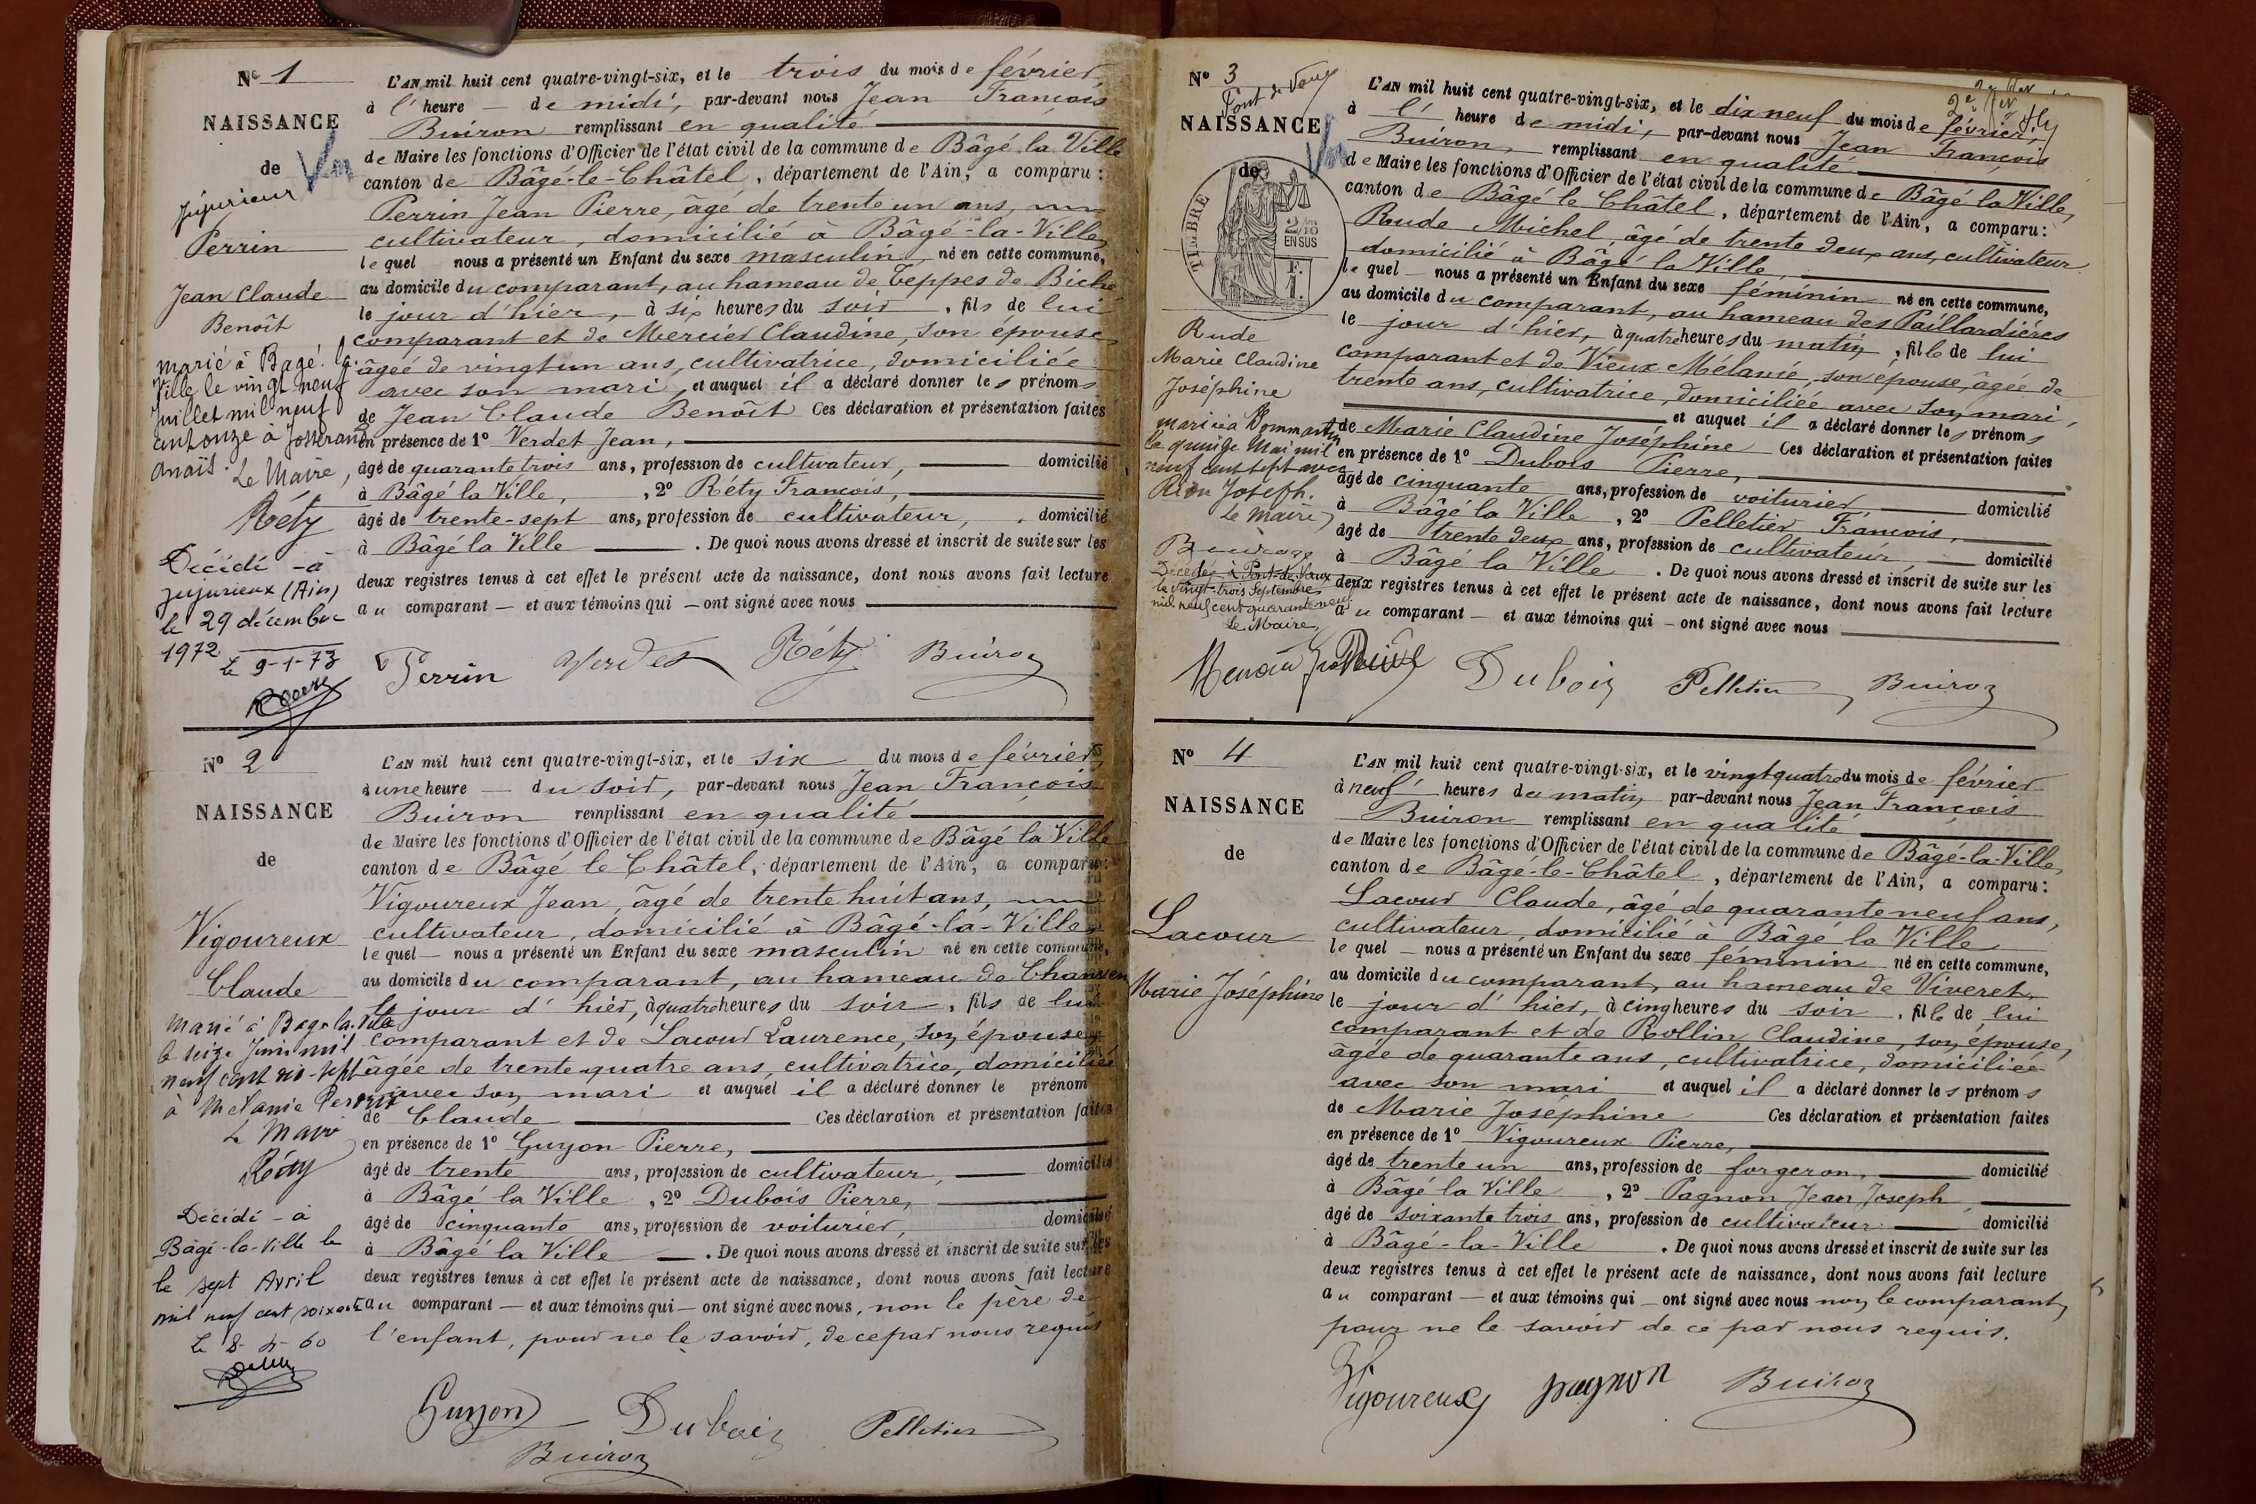 N° 1
NAISSANCE
de
Jujurieux
Perrin
Jean Claude
Benoît
marié à Bagé la
Ville le vingt neuf
Juillet mil neuf
cent onze à Josserand
Anaïs. Le Maire,
Réty
Décédé - à
Jujurieux (Ain)
le 29 décembre
1972
le 9-1-73
L'AN mil huit cent quatre-vingt-six, et le trois du mois de février,
à l' heure — de midi, par-devant nous Jean François
Buiron remplissant en qualité
de Maire les fonctions d'Officier de l'état civil de la commune de Bâgé la Ville
canton de Bâgé-le-Châtel, département de l'Ain, a comparu :
Perrin Jean Pierre, âgé de trente un ans,
cultivateur, domicilié à Bâgé-la-Ville,
lequel nous a présenté un Enfant du sexe masculin, né en cette commune,
au domicile du comparant, au hameau de Teppes de Biche
le jour d'hier, à six heures du soir, fils de lui
comparant et de Mercier Claudine, son épouse,
âgée de vingt un ans, cultivatrice, domiciliée
avec son mari, et auquel il a déclaré donner les prénoms
de Jean Claude Benoît Ces déclaration et présentation faites
en présence de 1° Verdet Jean,
âgé de quarante trois ans, profession de cultivateur, domicilié
à Bâgé la Ville, , 2° Réty François,
âgé de trente-sept ans, profession de cultivateur, domicilié
à Bâgé la Ville . De quoi nous avons dressé et inscrit de suite sur les
deux registres tenus à cet effet le présent acte de naissance, dont nous avons fait lecture
au comparant — et aux témoins qui — ont signé avec nous
Perrin Verdet Réty Buiron
N° 2
NAISSANCE
de
Vigoureux
Claude
Marié à Bagé la Ville
le seize Juin mil
neuf cent dix-sept
à Mélanie Perrin
Le Maire
Réty
Décédé - à
Bâgé-la-Ville le
le sept Avril
mil neuf cent soixante
le 8-4-60
L'AN mil huit cent quatre-vingt-six, et le six du mois de février,
à une heure — du soir, par-devant nous Jean François
Buiron remplissant en qualité
de Maire les fonctions d'Officier de l'état civil de la commune de Bâgé la Ville
canton de Bâgé le Châtel, département de l'Ain, a comparu :
Vigoureux Jean, âgé de trente huit ans,
cultivateur, domicilié à Bâgé-la-Ville,
lequel — nous a présenté un Enfant du sexe masculin né en cette commune,
au domicile du comparant, au hameau de
le jour d'hier, à quatre heures du soir, fils de lui
comparant et de Lacour Laurence, son épouse,
âgée de trente quatre ans, cultivatrice, domiciliée
avec son mari et auquel il a déclaré donner le prénom
de Claude Ces déclaration et présentation faites
en présence de 1° Guyon Pierre,
âgé de trente ans, profession de cultivateur, domicilié
à Bâgé la Ville, 2° Dubois Pierre,
âgé de cinquante ans, profession de voiturier, domicilié
à Bâgé la Ville — . De quoi nous avons dressé et inscrit de suite sur les
deux registres tenus à cet effet le présent acte de naissance, dont nous avons fait lecture
au comparant — et aux témoins qui — ont signé avec nous, non le père de
l'enfant, pour ne le savoir, de ce par nous requis
Guyon Dubois Pelletier
Buiron
N° 3
Pont de Vaux
NAISSANCE
de
TIMBRE
2/10
EN SUS
F.
1.
Rude
Marie Claudine
Joséphine
mariée à Dommartin
le quinze Mai mil
neuf cent sept avec
Joseph.
Le Maire
Décédée à Pont-de-Vaux
le vingt-trois Septembre
mil neuf cent quarante neuf
Le Maire,
L'AN mil huit cent quatre-vingt-six, et le dix neuf du mois de février,
à l' heure de midi, par-devant nous Jean François
Buiron, remplissant en qualité
de Maire les fonctions d'Officier de l'état civil de la commune de Bâgé la Ville,
canton de Bâgé le Châtel, département de l'Ain, a comparu :
Rude Michel, âgé de trente deux ans, cultivateur
domicilié à Bâgé la Ville,
lequel — nous a présenté un Enfant du sexe féminin né en cette commune,
au domicile du comparant, au hameau des Paillardières
le jour d'hier, à quatre heures du matin, fille de lui
comparant et de Vieux Mélanie, son épouse, âgée de
trente ans, cultivatrice, domiciliée avec son mari,
et auquel il a déclaré donner les prénoms
de Marie Claudine Joséphine Ces déclaration et présentation faites
en présence de 1° Dubois Pierre,
âgé de cinquante ans, profession de voiturier domicilié
à Bâgé la Ville, 2° Pelletier François,
âgé de trente deux ans, profession de cultivateur domicilié
à Bâgé la Ville . De quoi nous avons dressé et inscrit de suite sur les
deux registres tenus à cet effet le présent acte de naissance, dont nous avons fait lecture
au comparant — et aux témoins qui — ont signé avec nous
Dubois Pelletier Buiron
N° 4
NAISSANCE
de
Lacour
Marie Joséphine
L'AN mil huit cent quatre-vingt-six, et le vingt quatre du mois de février
à neuf heures du matin par-devant nous Jean François
Buiron remplissant en qualité
de Maire les fonctions d'Officier de l'état civil de la commune de Bâgé-la-Ville,
canton de Bâgé-le-Châtel, département de l'Ain, a comparu :
Lacour Claude, âgé de quarante neuf ans,
cultivateur, domicilié à Bâgé la Ville
lequel — nous a présenté un Enfant du sexe féminin né en cette commune,
au domicile du comparant, au hameau de Viveret,
le jour d'hier, à cinq heures du soir, fille de lui
comparant et de Rollin Claudine, son épouse,
âgée de quarante ans, cultivatrice, domiciliée
avec son mari et auquel il a déclaré donner les prénoms
de Marie Joséphine Ces déclaration et présentation faites
en présence de 1° Vigoureux Pierre,
âgé de trente un ans, profession de forgeron, domicilié
à Bâgé la Ville, 2° Pagnon Jean Joseph,
âgé de soixante trois ans, profession de cultivateur domicilié
à Bâgé-la-Ville . De quoi nous avons dressé et inscrit de suite sur les
deux registres tenus à cet effet le présent acte de naissance, dont nous avons fait lecture
au comparant — et aux témoins qui — ont signé avec nous non le comparant,
pour ne le savoir de ce par nous requis.
Vigoureux pagnon Buiron